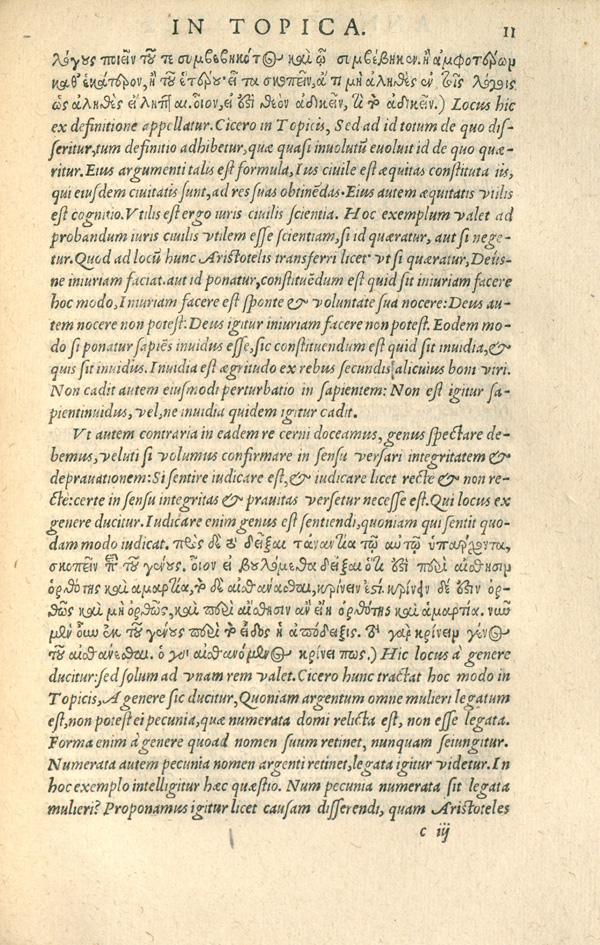 IN TOPICA. 11
λόγους ποιεῖν τοῦ τε συμβεβηκότος καὶ ᾧ συμβέβηκεν. ἢ ἀμφοτέρων
καθ' ἑκάτερον, ἢ τοῦ ἑτέρου· εἶτα σκοπεῖν, εἴ τι μὴ ἀληθὲς ἐν τοῖς λόγοις
ὡς ἀληθὲς εἴληπται. οἷον, εἰ ἔστι θεὸν ἀδικεῖν, τί τὸ ἀδικεῖν.) Locus hic
ex definitione appellatur. Cicero in Topicis, Sed ad id totum de quo dis-
seritur, tum definitio adhibetur, quæ quasi inuolutũ euoluit id de quo quæ-
ritur. Eius argumenti talis est formula, Ius ciuile est æquitas constituta iis,
qui eiusdem ciuitatis sunt, ad res suas obtinẽdas. Eius autem æquitatis vtilis
est cognitio. Vtilis est ergo iuris ciuilis scientia. Hoc exemplum valet ad
probandum iuris ciuilis vtilem esse scientiam, si id quæratur, aut si nege-
tur. Quod ad locũ hunc Aristotelis transferri licet: vt si quæratur, Deus-
ne iniuriam faciat. aut id ponatur, constituẽdum est quid sit iniuriam facere
hoc modo, Iniuriam facere est sponte & voluntate sua nocere: Deus au-
tem nocere non potest: Deus igitur iniuriam facere non potest. Eodem mo-
do si ponatur sapiẽs inuidus esse, sic constituendum est quid sit inuidia, &
quis sit inuidus. Inuidia est ægritudo ex rebus secundis alicuius boni viri.
Non cadit autem eiusmodi perturbatio in sapientem: Non est igitur sa-
pientinuidus, vel, ne inuidia quidem igitur cadit.
Vt autem contraria in eadem re cerni doceamus, genus spectare de-
bemus, veluti si volumus confirmare in sensu versari integritatem &
deprauationem: Si sentire iudicare est, & iudicare licet recte & non re-
cte: certe in sensu integritas & prauitas versetur necesse est. Qui locus ex
genere ducitur. Iudicare enim genus est sentiendi, quoniam qui sentit quo-
dam modo iudicat. πρὸς δὲ τὸ δεῖξαι τἀναντία τῷ αὐτῷ ὑπάρχοντα,
σκοπεῖν ἐπὶ τοῦ γένους. οἷον εἰ βουλόμεθα δεῖξαι ὅτι ἔστι περὶ αἴσθησιν
ὀρθότης καὶ ἁμαρτία, τὸ δὲ αἰσθάνεσθαι, κρίνειν ἐστί. κρίνειν δὲ ἔστιν ὀρ-
θῶς καὶ μὴ ὀρθῶς, καὶ περὶ αἴσθησιν ἂν εἴη ὀρθότης καὶ ἁμαρτία. νῦν
μὲν οὖν ἐκ τοῦ γένους περὶ τὸ εἶδος ἡ ἀπόδειξις. τὸ γὰρ κρίνειν γένος
τοῦ αἰσθάνεσθαι. ὁ γὰρ αἰσθανόμενος κρίνει πως.) Hic locus à genere
ducitur: sed solum ad vnam rem valet. Cicero hunc tractat hoc modo in
Topicis, A genere sic ducitur, Quoniam argentum omne mulieri legatum
est, non potest ei pecunia, quæ numerata domi relicta est, non esse legata.
Forma enim à genere quoad nomen suum retinet, nunquam seiungitur.
Numerata autem pecunia nomen argenti retinet, legata igitur videtur. In
hoc exemplo intelligitur hæc quæstio. Num pecunia numerata sit legata
mulieri? Proponamus igitur licet causam disserendi, quam Aristoteles
c iij